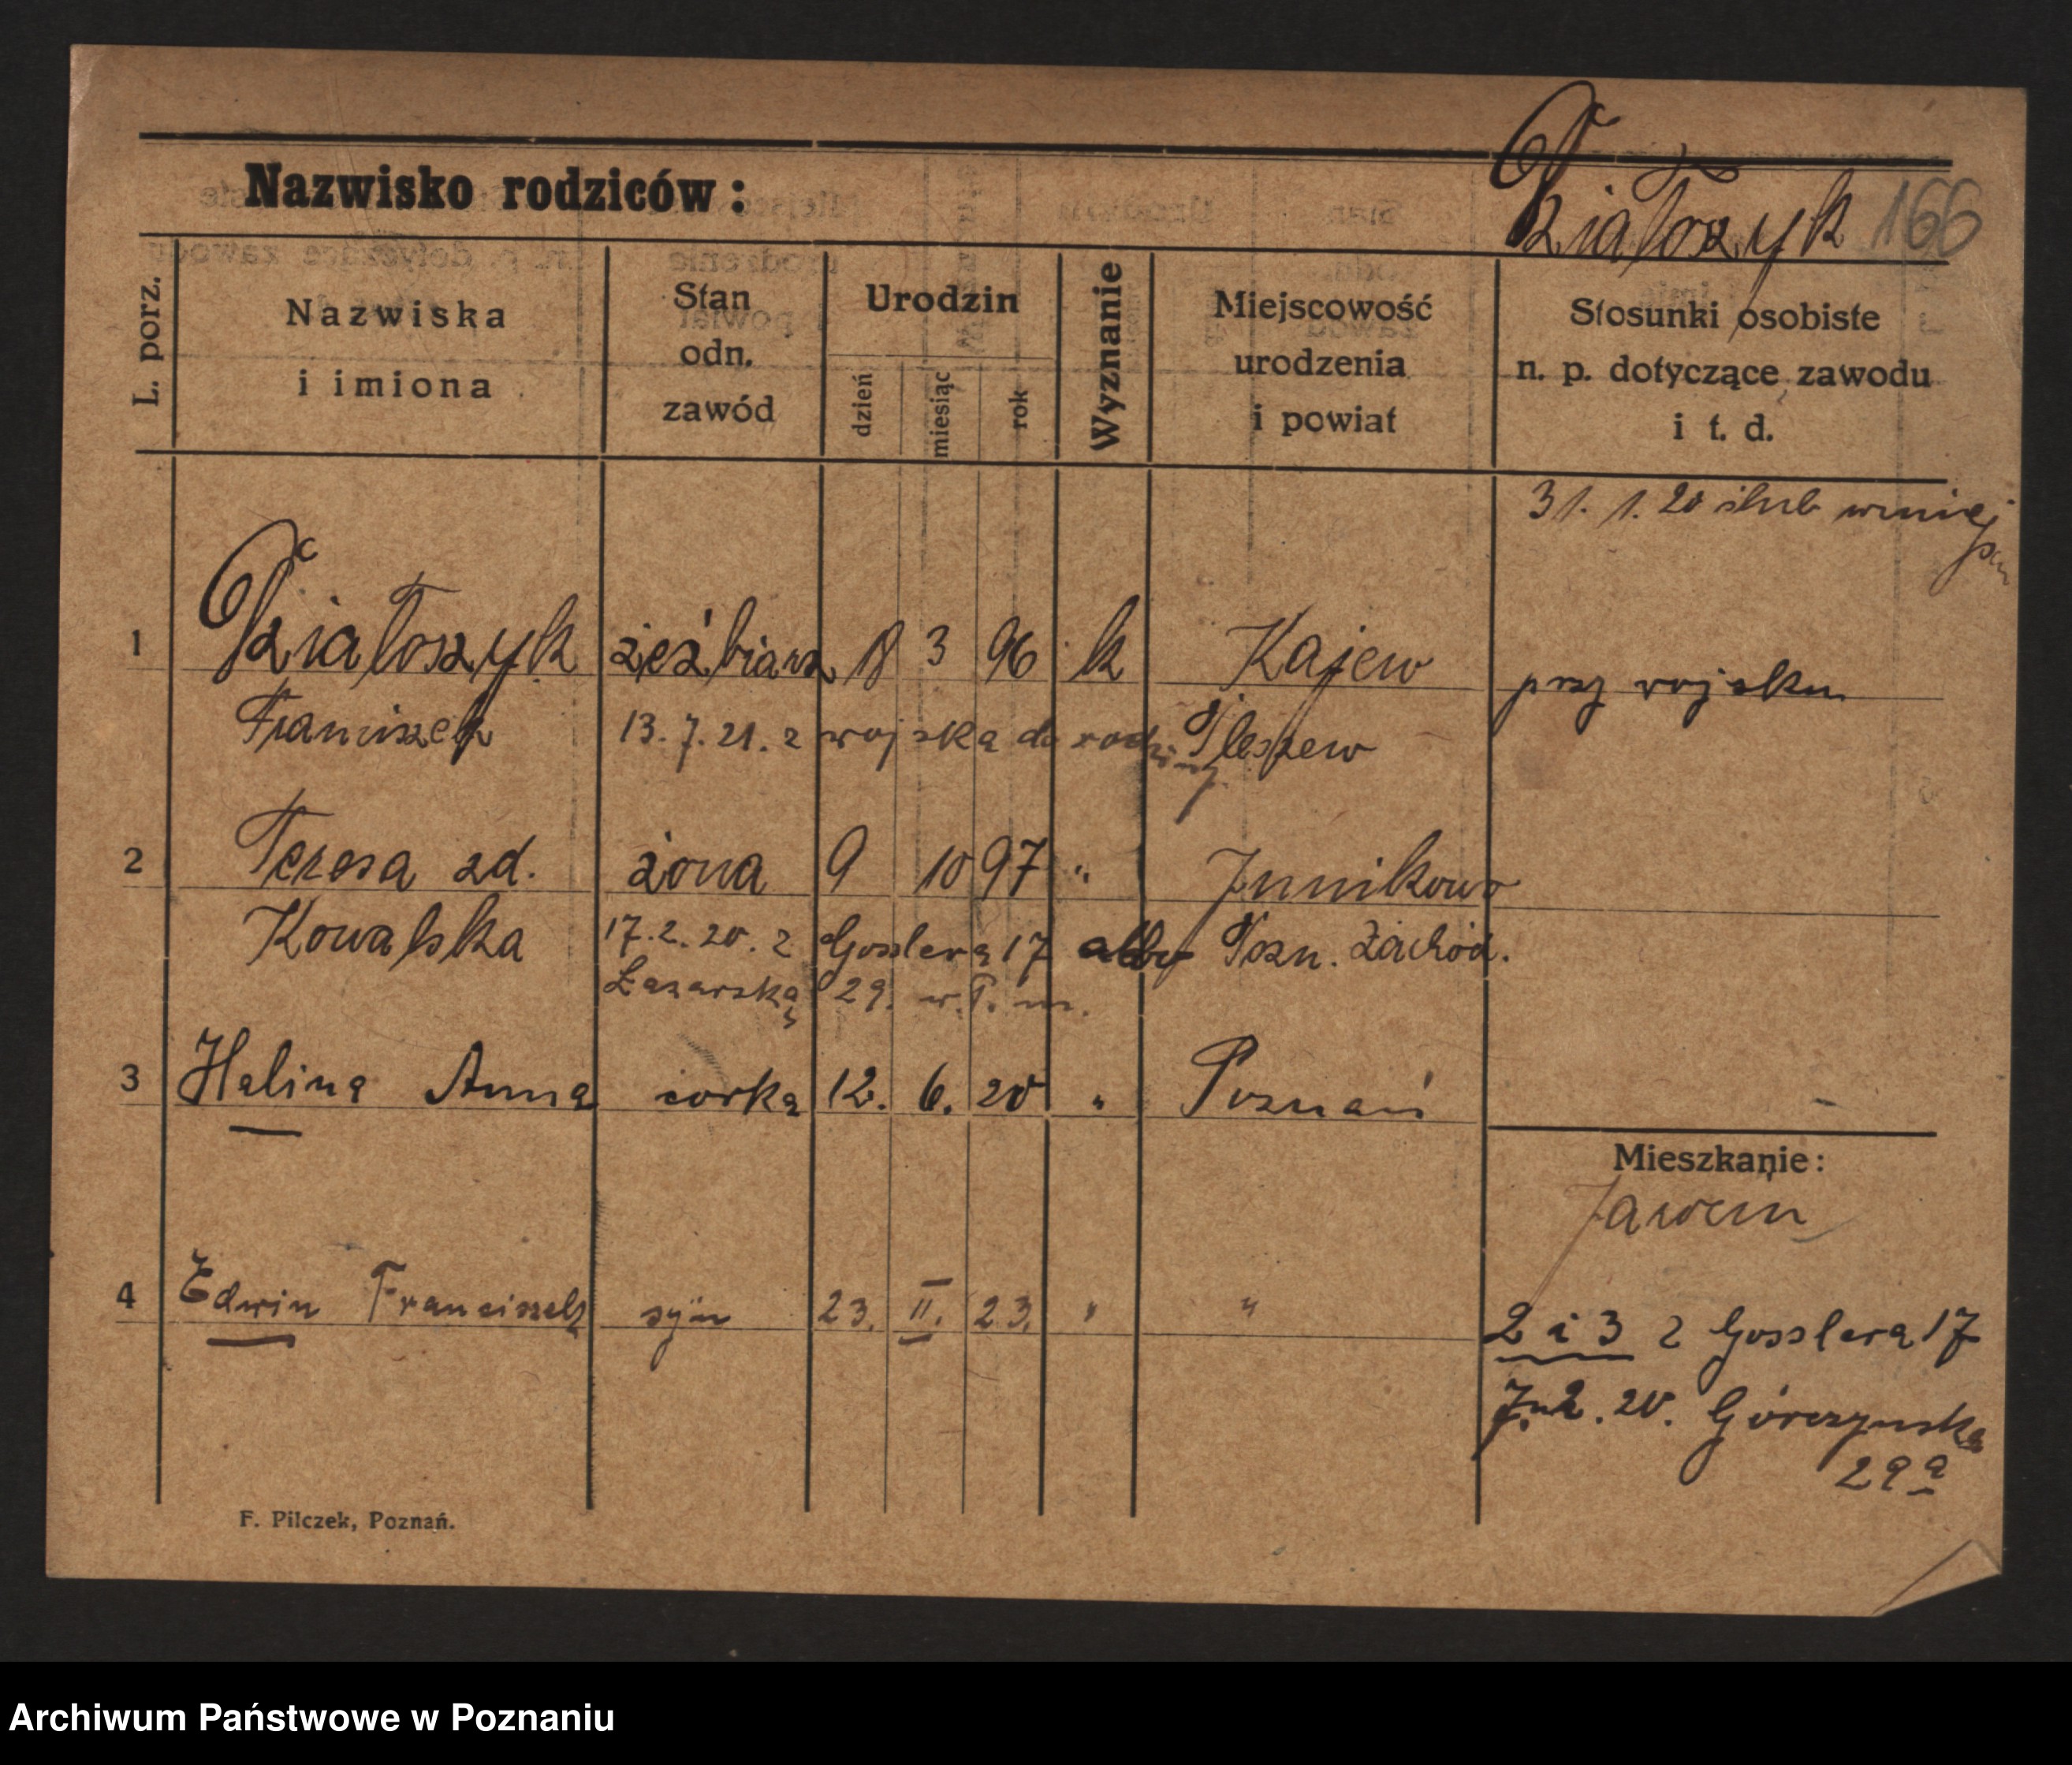 Działoszyk 166
Nazwisko rodziców:
L. porz.
Nazwiska
i imiona
Stan
odn.
zawód
Urodzin
dzień
miesiąc
rok
Wyznanie
Miejscowość
urodzenia
i powiat
Stosunki osobiste
n. p. dotyczące zawodu
i t. d.
31. 1. 20 ślub
1 Działoszyk 18 3 96 k Kajew przy wojsku
Franciszek 13. 7. 21. z wojska do rodziny Pleszew
2 Teresa zd. żona 9 10 97 " Junikowo
Kowalska 17. 2. 20. z Gosslera 17 Pozn. Zachod.
Łazarska 29. w. P. m.
3 Halina Anna córka 12. 6. 20 " Poznań
Mieszkanie:
4 Edwin Franciszek syn 23. II. 23. " "
2 i 3 z Gosslera 17
2. 20. Górczynska
29a
F. Pilczek, Poznań.
Archiwum Państwowe w Poznaniu